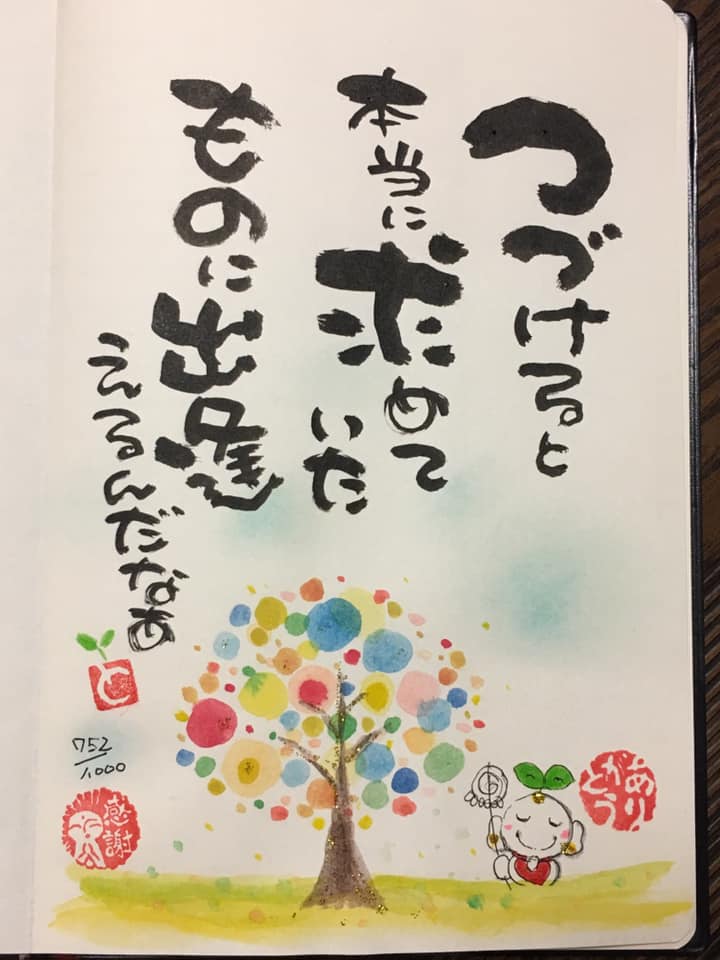 つづけると
本当に求めて
いた
ものに出逢
えるんだなぁ
752/1,000
感謝
ありがとう